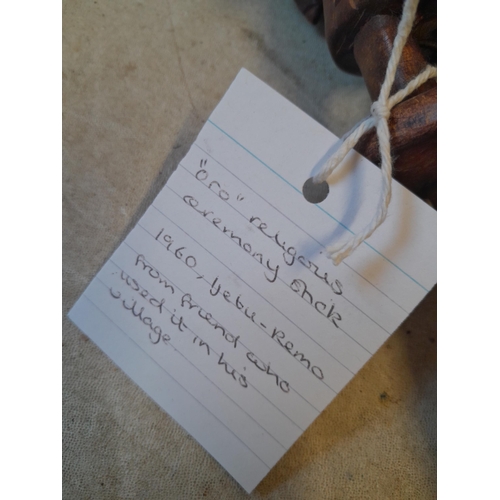 "Oro" religous
ceremony stick
1960, Ijebu-Remo
from friend who
used it in his
village.